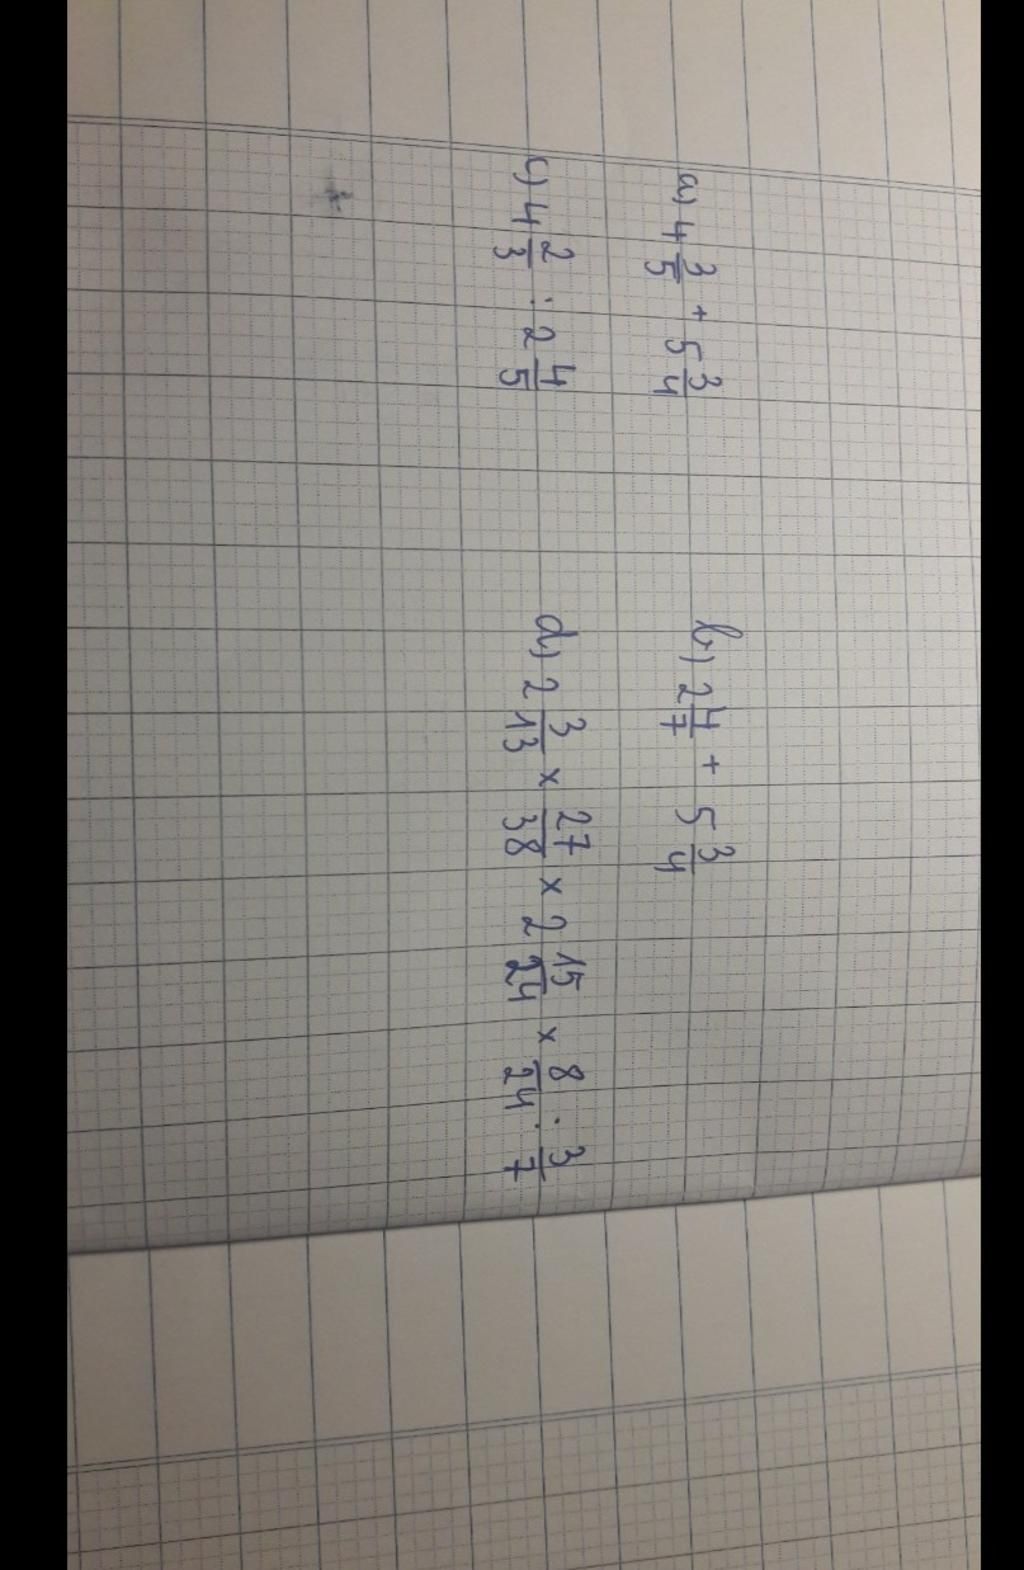 a) 4 3/5 + 5 3/4 b) 2 4/7 + 5 3/4
c) 4 2/3 : 2 4/5 d) 2 3/13 × 27/38 × 2 15/24 × 8/24 : 3/7